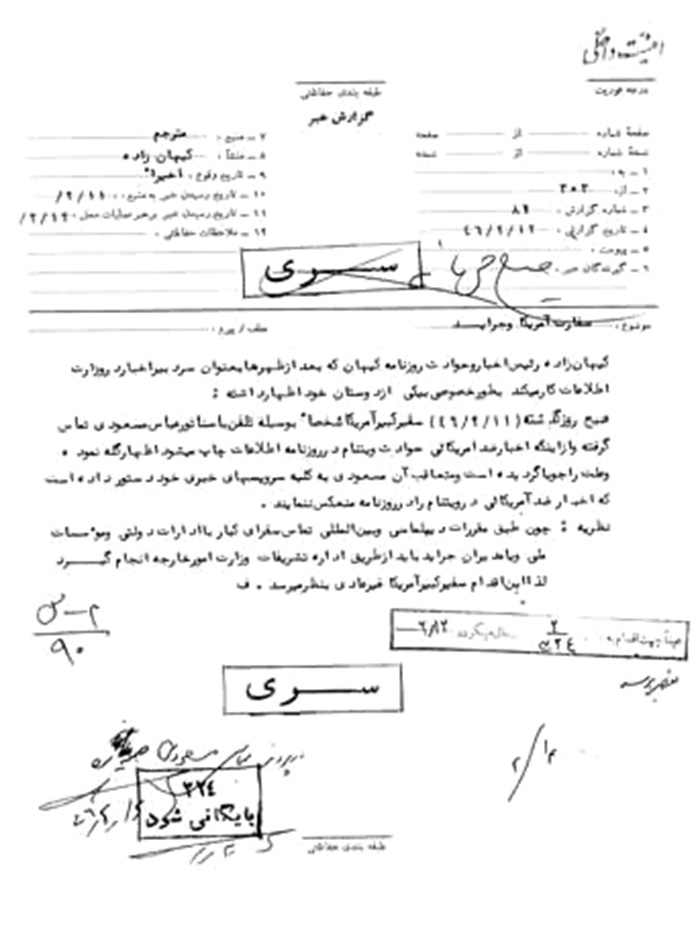 امنیت داخلی
درجه فوریت
طبقه بندی حفاظتی
گزارش خبر
صفحهٔ شماره از صفحه
نسخهٔ شماره از نسخه
۱ – به :
۲ – از : ۳۰۲
۳ – شماره گزارش : ۸۲
۴ – تاریخ گزارش : ۴۶/۲/۱۲
۵ – پیوست :
۶ – گیرندگان خبر :
۷ – منبع : مترجم
۸ – منشأ : کیهان زاده
۹ – تاریخ وقوع : اخیراً
۱۰ – تاریخ رسیدن خبر به منبع : ۲/۱۱/
۱۱ – تاریخ رسیدن خبر برهبر عملیات محل : ۲/۱۲/
۱۲ – ملاحظات حفاظتی :
سری
موضوع : سفارت آمریکا وجراید
عطف / پیرو :
کیهان زاده رئیس اخباروحوادث روزنامه کیهان که بعد ازظهرها بعنوان سرد بیراخبارد روزارت
اطلاعات کارمیکند بطورخصوصی بیکی ازدوستان خود اظهارداشته :
صبح روزگذشته (۴۶/۲/۱۱) سفیرکبیرآمریکا شخصاً بوسیله تلفن با سناتورعباس مسعودی تماس
گرفته وازاینکه اخبارضد آمریکائی حوادث ویتنام د رروزنامه اطلاعات چاپ میشود اظهارگله نمود ه
وعلت راجویا گرد ید ه است ومتعاقب آن مسعودی به کلیه سرویسهای خبری خود د ستور د اد ه است
که اخبار ضد آمریکائی د رویتنام راد رروزنامه منعکس ننمایند .
نظریه : چون طبق مقررات د یپلماسی وبین‌المللی تماس سفرای کبار با ادارات د ولتی وموسسات
ملی ویامد یران جراید باید ازطریق اد اره تشریفات وزارت امورخارجه انجام گیرد
لذا این اقدام سفیرکبیرآمریکا غیرعادی بنظرمیرسد . ف
م – س
۹۰
عیناً جهت اقدام به ۲/۳۲۴ ارسال میگردد ۲/۱۲
سری
۲/۱۴
پرونده عباس مسعودی
۳۲۴
بایگانی شود
طبقه بندی حفاظتی